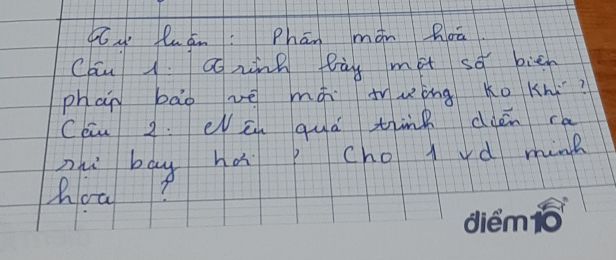 Tự luận : Phân môn hoá.
Câu 1: Trình bày một số biện
pháp bảo vệ môi trường ko khí ?
Câu 2: Nêu quá trình diễn ra
sự bay hơi ? Cho 1 vd minh
họa ?
điểm10